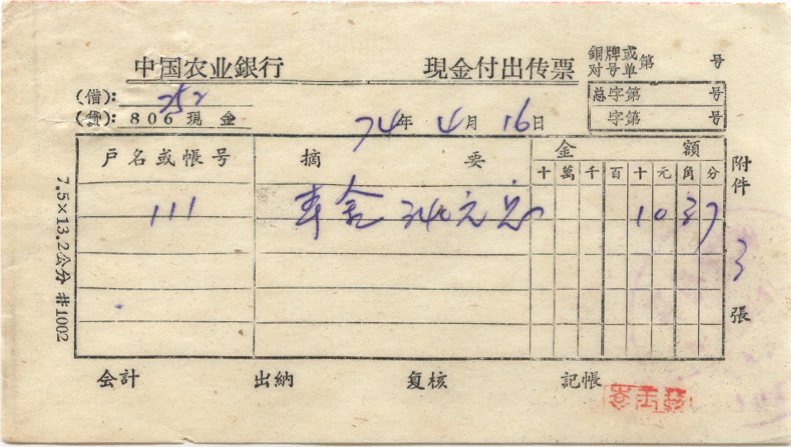 中国农业銀行 現金付出传票 銅牌或 第 号
对号单
(借): 252 总字第 号
(貨): 806 現金 字第 号
74年 4月 16日
戶名或帳号 摘 要 金 額
十 萬 千 百 十 元 角 分
111 340元 1 0 3 7
附件 3 張
7.5×13.2公分 #1002
会計 出納 复核 記帳